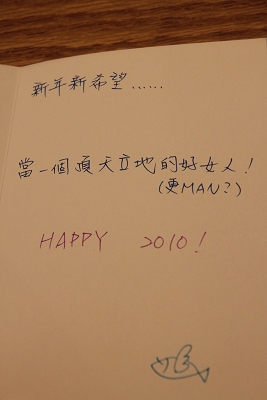 新年新希望......
當一個頂天立地的好女人!
(更MAN?)
HAPPY 2010!